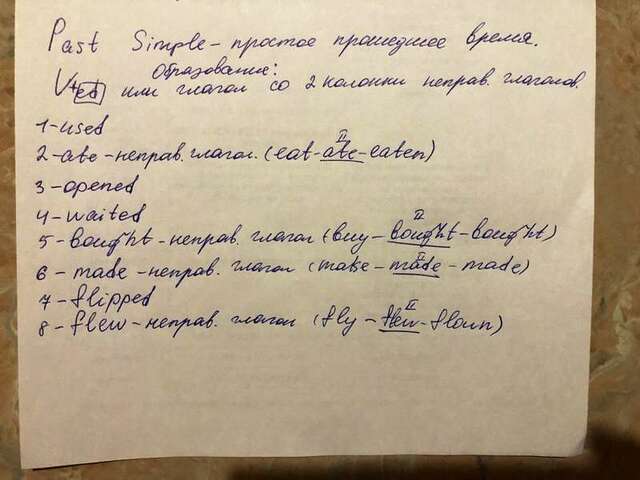 Past Simple - простое прошедшее время.
Образование:
V+ed или глагол со 2 колонки неправ. глаголов.
1 - used
2 - ate - неправ. глагол. (eat - ate - eaten)
II
3 - opened
4 - waited
5 - bought - неправ. глагол (buy - bought - bought)
II
6 - made - неправ. глагол (make - made - made)
II
7 - flipped
8 - flew - неправ. глагол (fly - flew - flown)
II